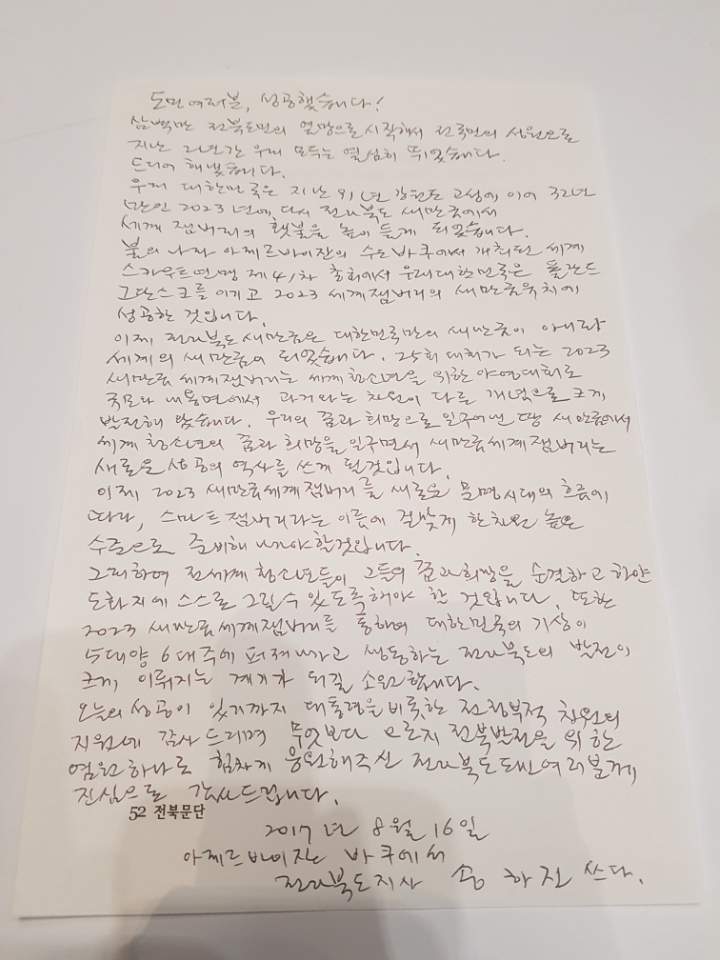 도민여러분, 성공했습니다!
삼백만 전북도민의 열망으로 시작해서 전국민의 성원으로
지난 2년간 우리 모두는 열심히 뛰었습니다.
드디어 해냈습니다.
우리 대한민국은 지난 91년 강원도 고성에 이어 32년
만인 2023년에 다시 전라북도 새만금에서
세계 잼버리의 횃불을 높이 들게 되었습니다.
불의 나라 아제르바이잔의 수도 바쿠에서 개최된 세계
스카우트연맹 제41차 총회에서 우리 대한민국은 폴란드
그단스크를 이기고 2023 세계잼버리의 새만금유치에
성공한 것입니다.
이제 전라북도 새만금은 대한민국만의 새만금이 아니라
세계의 새만금이 되었습니다. 25회 대회가 되는 2023
새만금 세계잼버리는 세계청소년을 위한 야영대회로
규모나 내용면에서 과거와는 차원이 다른 개념으로 크게
발전해 왔습니다. 우리의 꿈과 희망으로 일구어낸 땅 새만금에서
세계 청소년의 꿈과 희망을 일구면서 새만금세계잼버리는
새로운 성공의 역사를 쓰게 될것입니다.
이제 2023 새만금세계잼버리를 새로운 문명시대의 흐름에
따라, 스마트잼버리라는 이름에 걸맞게 한차원 높은
수준으로 준비해 나가야 할것입니다.
그리하여 전세계 청소년들이 그들의 꿈과 희망을 순결하고 하얀
도화지에 스스로 그릴 수 있도록 해야 할 것입니다. 또한
2023 새만금세계잼버리를 통하여 대한민국의 기상이
5대양 6대주에 퍼져나가고 생동하는 전라북도의 발전이
크게 이뤄지는 계기가 되길 소원합니다.
오늘의 성공이 있기까지 대통령을 비롯한 전정부적 차원의
지원에 감사드리며 무엇보다 오로지 전북발전을 위한
염원 하나로 힘차게 응원해주신 전라북도 도민여러분께
진심으로 감사드립니다.
52 전북문단
2017년 8월 16일
아제르바이잔 바쿠에서
전라북도지사 송하진 쓰다.